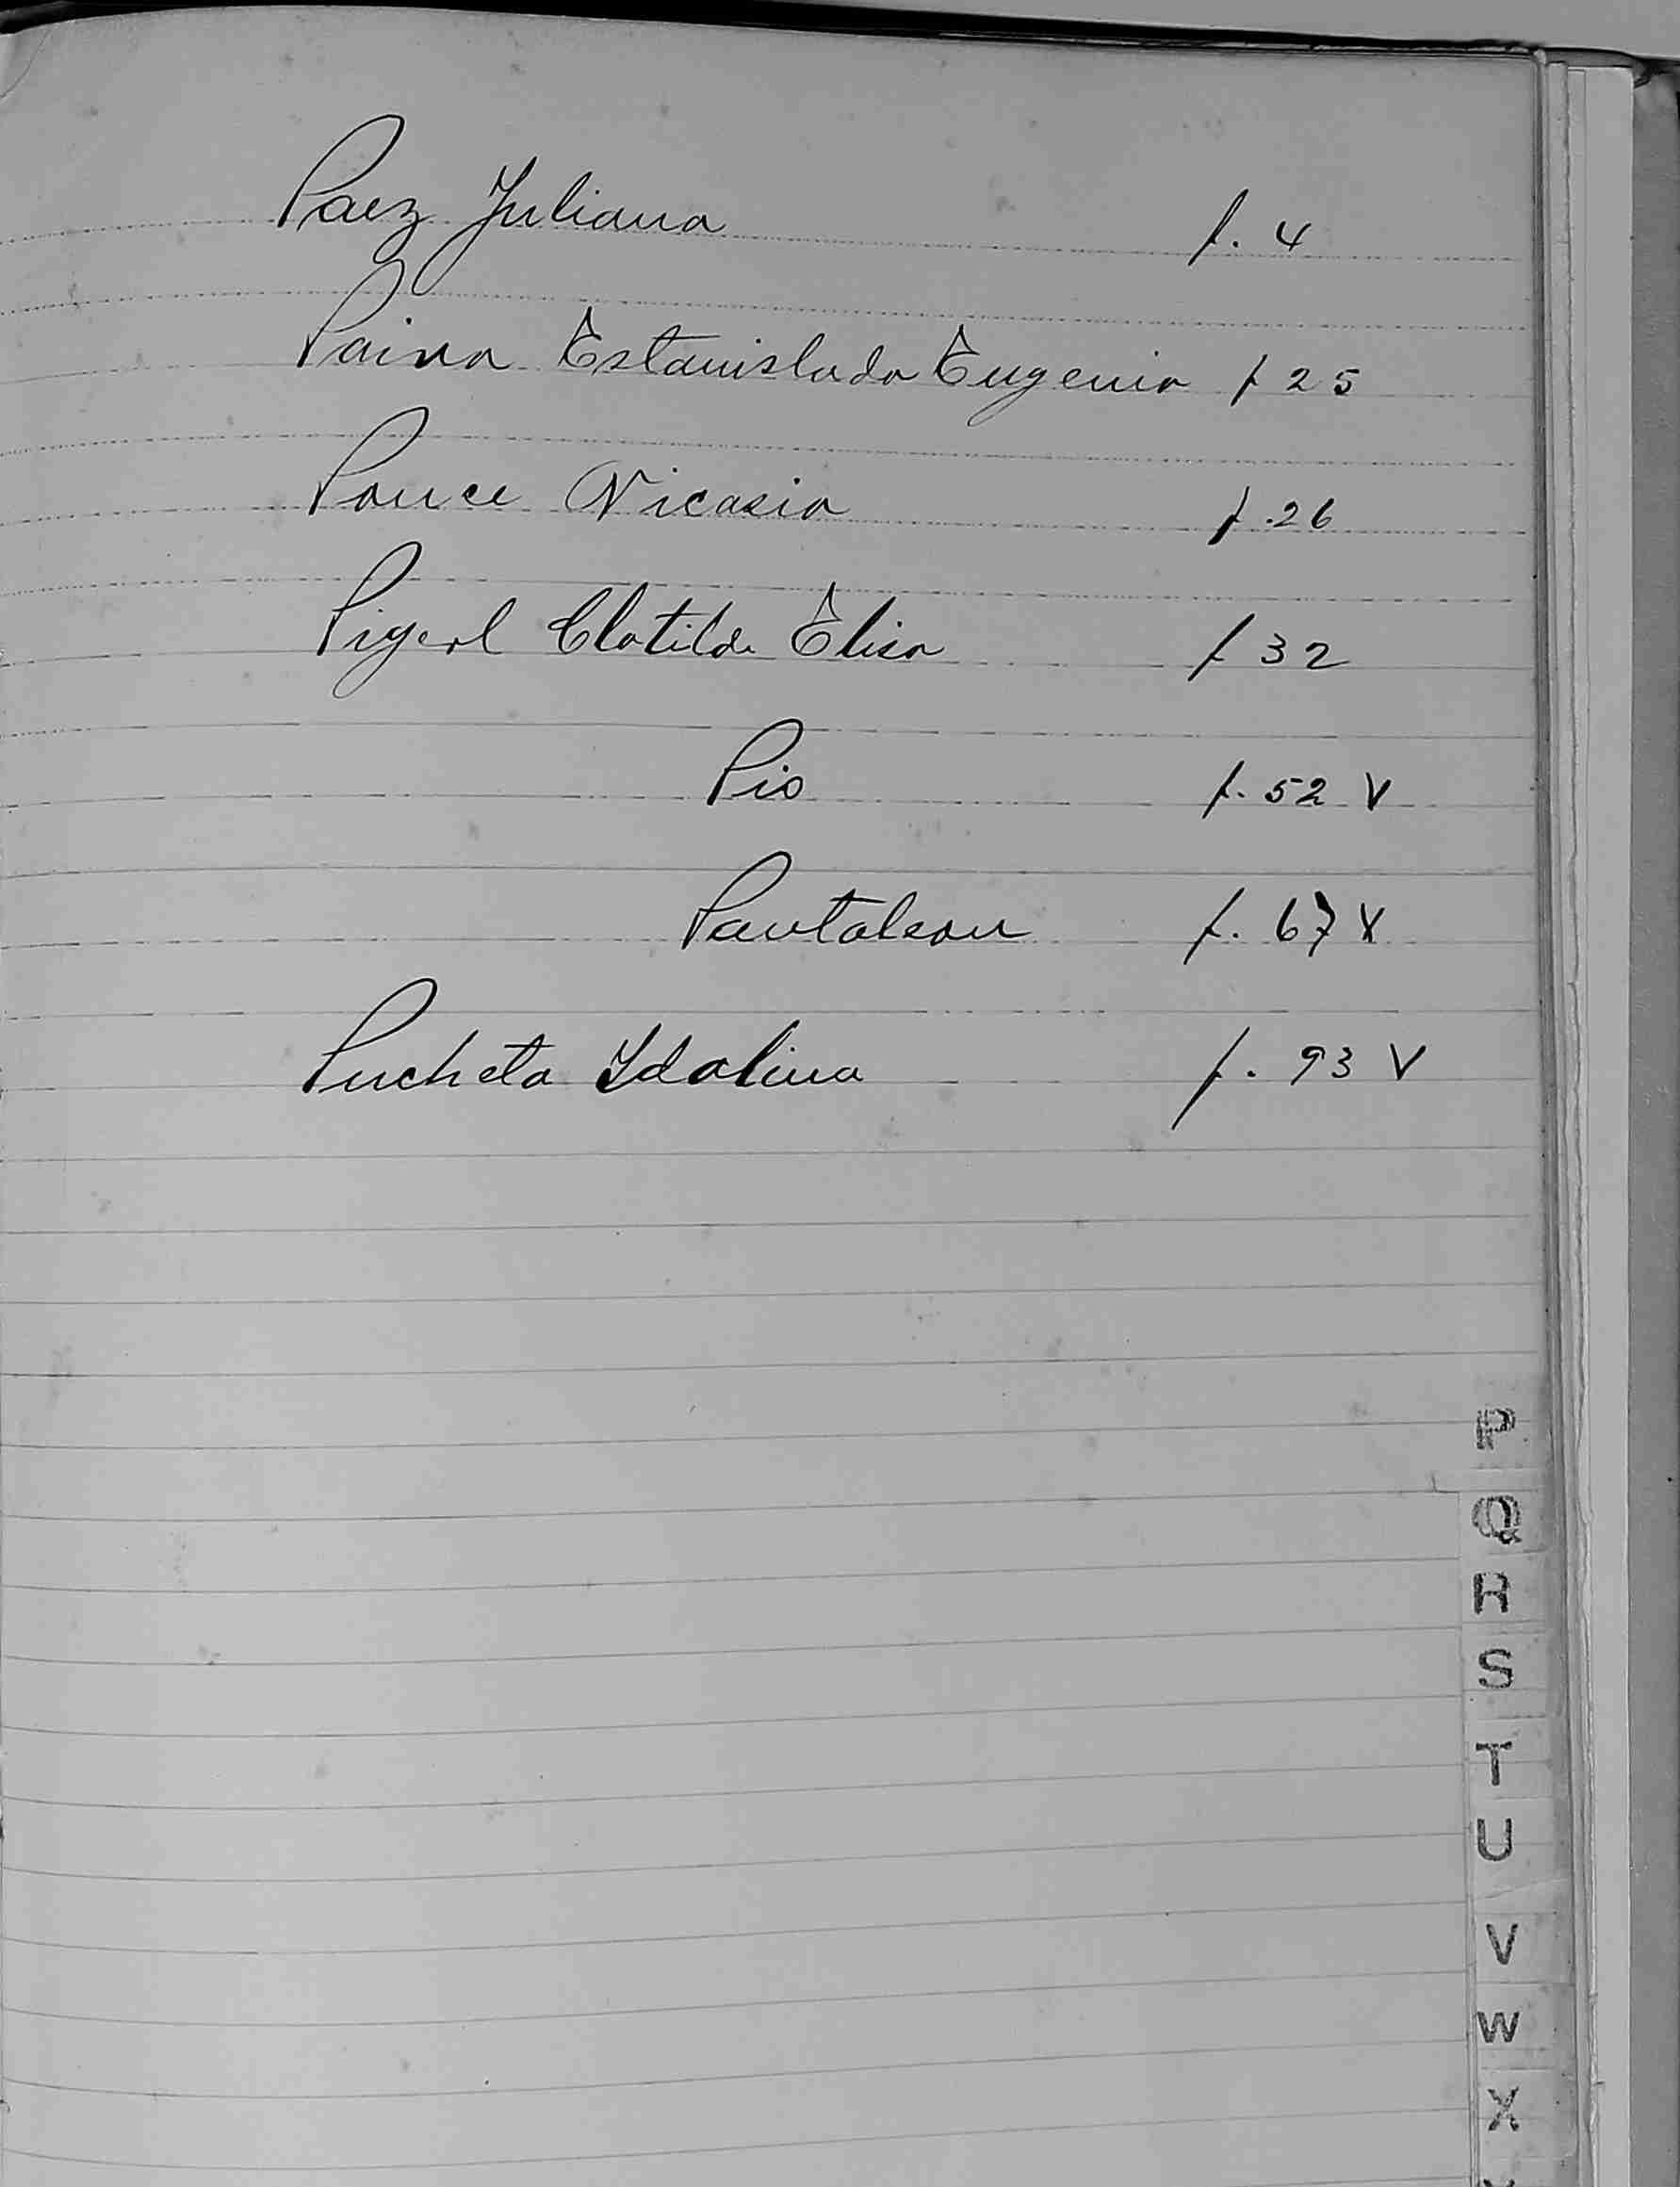 Paez Juliana f. 4
Paiva Estanislada Eugenia f 25
Ponce Nicasia f. 26
Clotilde Elisa f 32
Pio f. 52 V
Pantaleon f. 67 V
Pucheta Idalina f. 93 V
P
Q
R
S
T
U
V
W
X